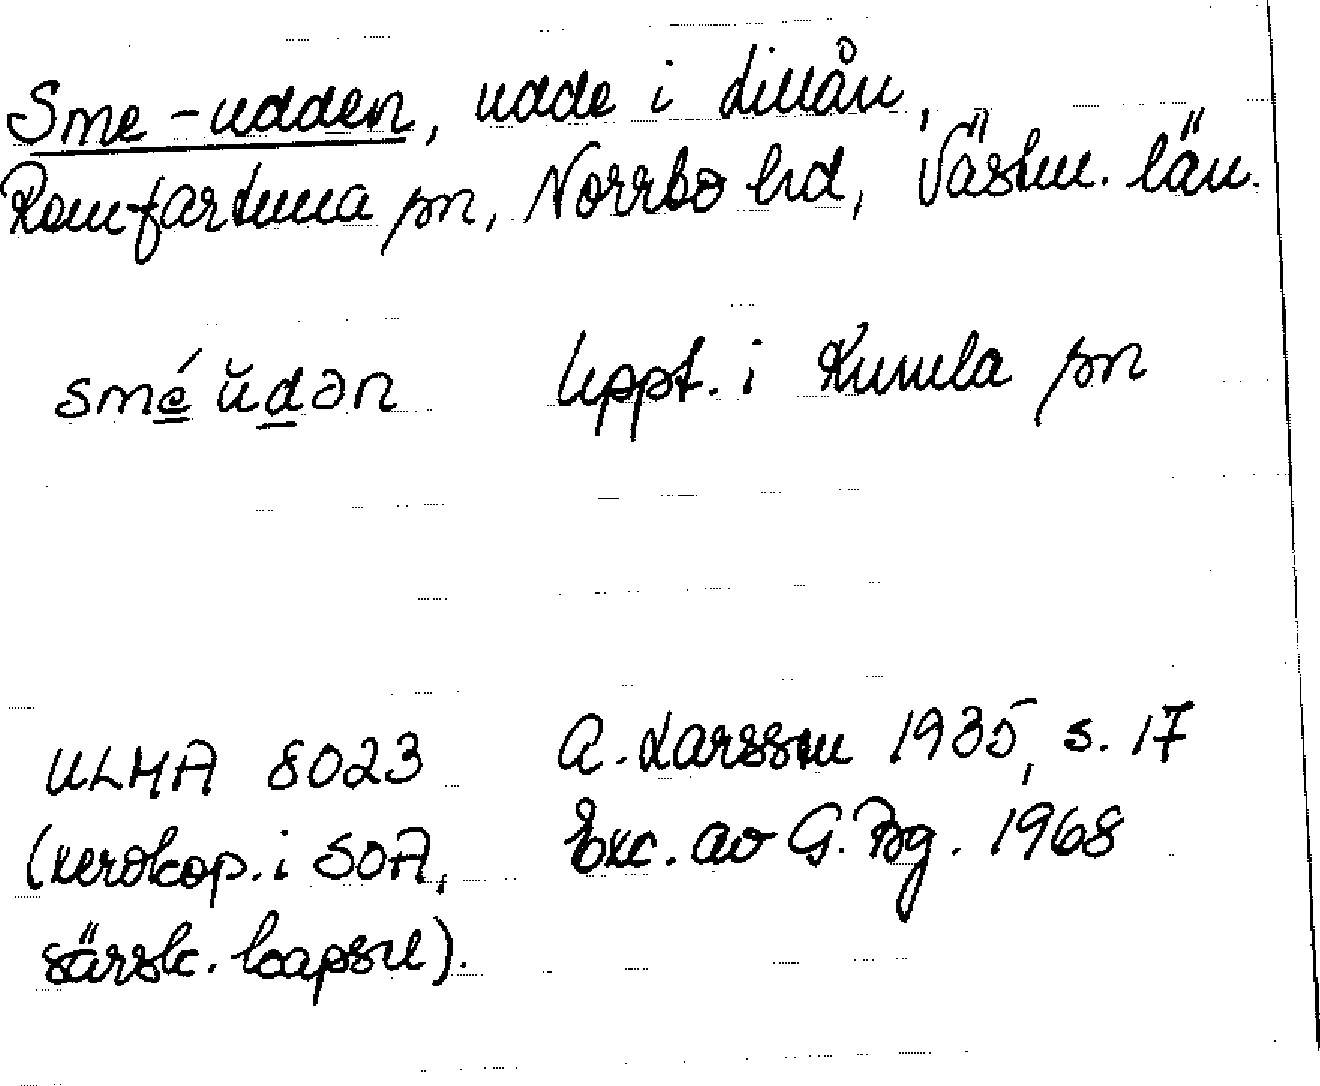 Sme-udden, udde i Lillån,
Romfartuna sn, Norrbo hd, Västm. län.
smé ŭdən Uppt. i Kumla sn
ULMA 8023 A. Larsson 1935, s. 17
(xerokop. i SOA, Exc. av G. Bg. 1968
särsk. kapsel).